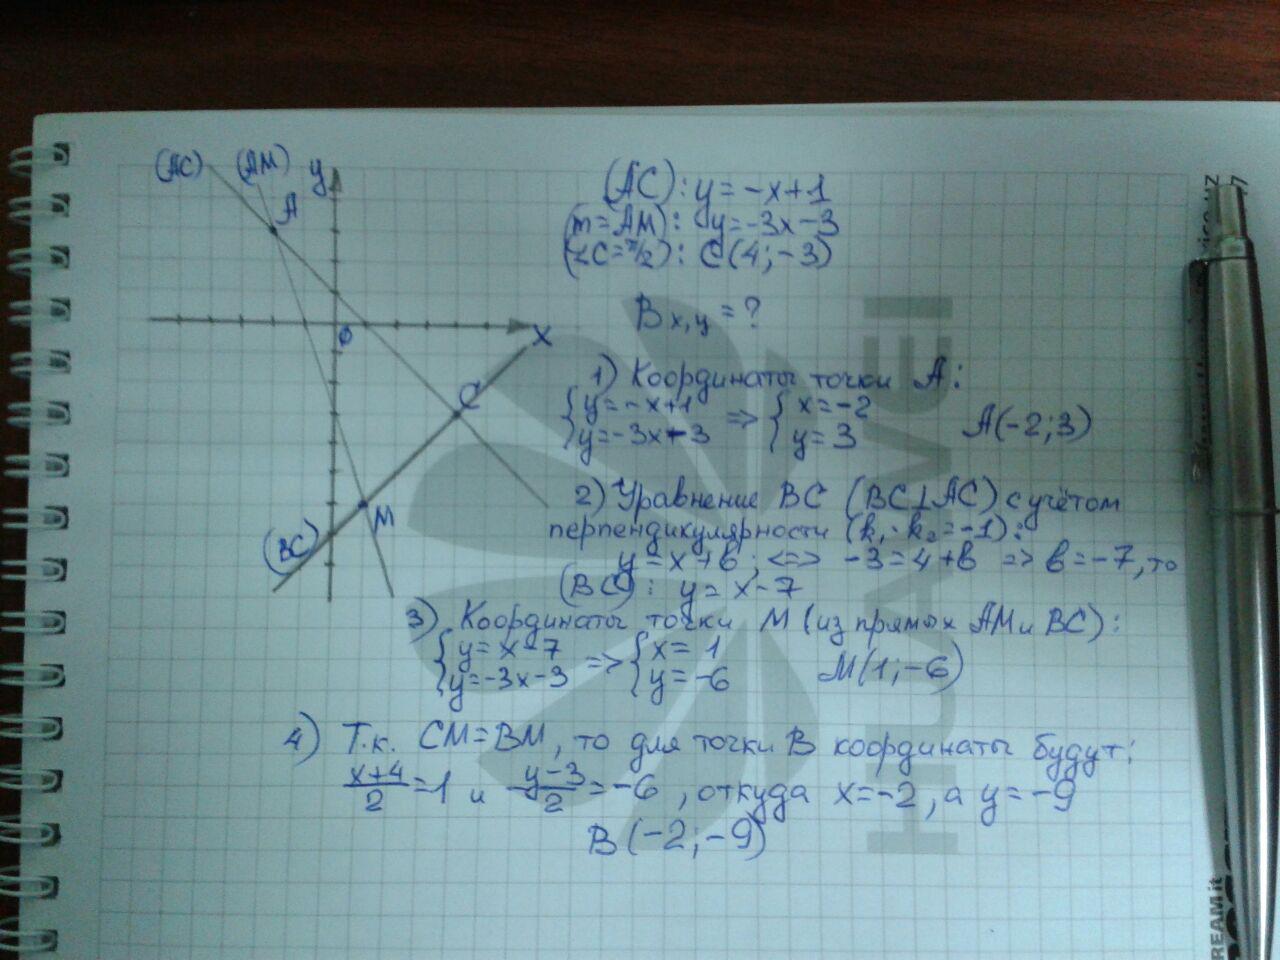 (AC) (AM) y
A
0
X
C
M
(BC)
(AC): y = -x+1
(m=AM): y=-3x-3
(∠C=π/2): C(4;-3)
B x,y = ?
1) Координаты точки A:
{y=-x+1 => {x=-2
{y=-3x-3 {y=3 A(-2;3)
2) Уравнение BC (BC⊥AC) с учётом
перпендикулярности (k₁·k₂=-1):
y=x+b; <=> -3=4+b => b=-7, то
(BC): y=x-7
3) Координаты точки M (из прямых AM и BC):
{y=x-7 => {x=1
{y=-3x-3 {y=-6 M(1;-6)
4) Т.к. CM=BM, то для точки B координаты будут:
(x+4)/2=1 и (y-3)/2=-6, откуда x=-2, а y=-9
B(-2;-9)
HUAWEI
DREAM it